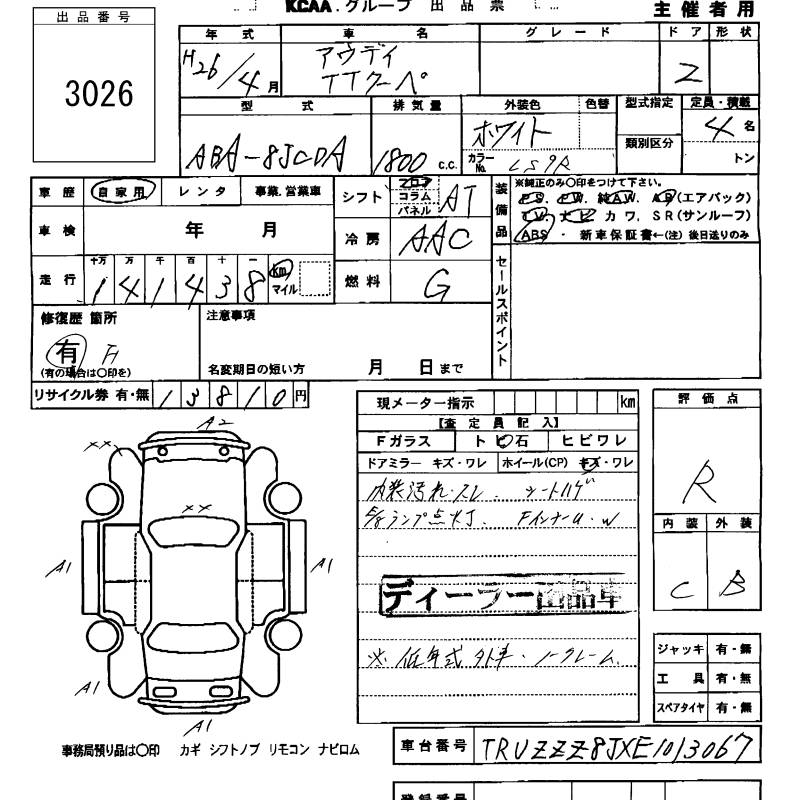 KCAA.グループ 出品票
主催者用
出品番号
3026
年式 車名 グレード ドア 形状
H26/4月 アウディ TTクーペ 2
型式 排気量 外装色 色替 型式指定 定員・積載
ABA-8JCDA 1800 c.c. ホワイト 類別区分 4名
カラーNo. LS9R トン
車歴 自家用 レンタ 事業.営業車
シフト フロア コラム パネル AT
装備品
※純正のみ〇印をつけて下さい。
P.S. P.W. 純A.W. A.B(エアバック)
T.V. ナビ カワ. SR(サンルーフ)
ABS・新車保証書←(注)後日送りのみ
車検 年 月
冷房 AAC
走行 十万 万 千 百 十 一
141438 km マイル
燃料 G
セールスポイント
修復歴 箇所
有
(有の場合は〇印を)
注意事項
名変期日の短い方 月 日まで
リサイクル券 有・無 13810円
現メーター指示 km
【査定員記入】
Fガラス トビ石 ヒビワレ
ドアミラー キズ・ワレ ホイール(CP) キズ・ワレ
内装汚れ・スレ. シートハゲ
ランプ点灯. Fインナー
ディーラー出品車
※ 低年式外車・ノークレーム.
評価点
R
内装 外装
C B
A2
XX
XX
A1
A1
A1
A1
ジャッキ 有・無
工具 有・無
スペアタイヤ 有・無
事務局預り品は〇印 カギ シフトノブ リモコン ナビロム
車台番号 TRUZZZ8JXE1013067
登録番号